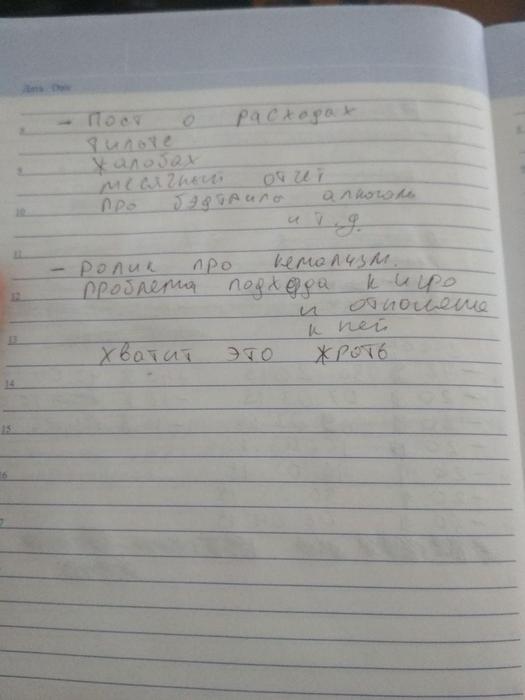 Дата Date
8
– Пост о расходах
тильте
9
жалобах
месячный отчет
10
про бэдтрипо алкоголь
и т.д.
11
– ролик про кемализм.
12
проблема подхода к игро
и отношеше
13
к ней
хватит это жроть
14
15
16